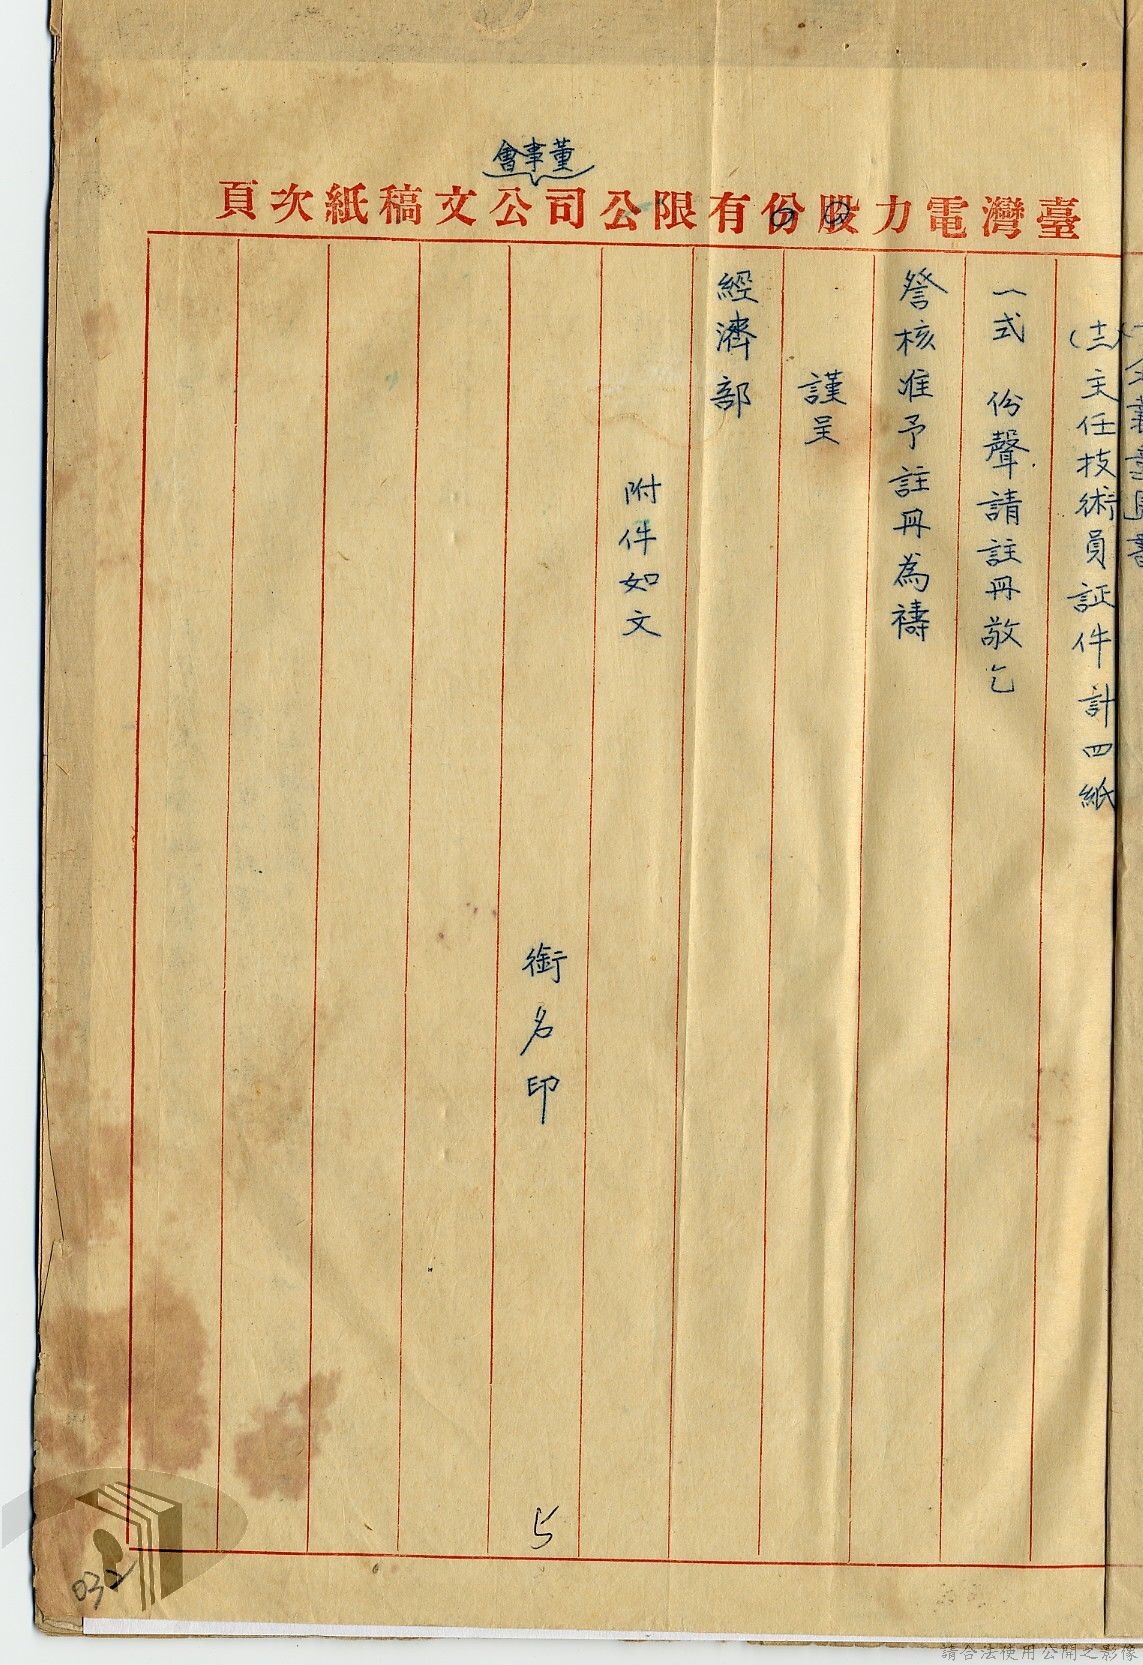 臺灣電力股份有限公司公文稿紙次頁
董事會
(十三)主任技術員証件計四紙
一式 份聲請註冊敬乞
詧核准予註冊為禱
謹呈
經濟部
附件如文
銜名印
5
032
請合法使用公開之影像